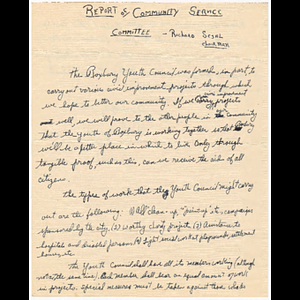 REPORT of COMMUNITY SERVICE
COMMITTEE - Richard Segal
chairman
The Roxbury Youth Council was formed, in part, to
carry out various civic improvement projects through which
we hope to better our community. If we carry projects
well, we will prove to the other people in the community
that the youth of Roxbury is working together so that
will be a better place in which to live. Only through
tangible proof, such as this, can we receive the aid of all
citizens.
The types of work that the Youth Council might carry
out are the following: (1) All clean-up, "paint-up" etc., campaigns
sponsored by the city, (2) worthy charity project (3) donations to
hospitals and disabled persons, (4) light social work at playgrounds, settlement
houses, etc.
The Youth Council shall have all its members working (although
not at the same time). Each member shall bear an equal amount of work
in projects. Special measures must be taken against those who